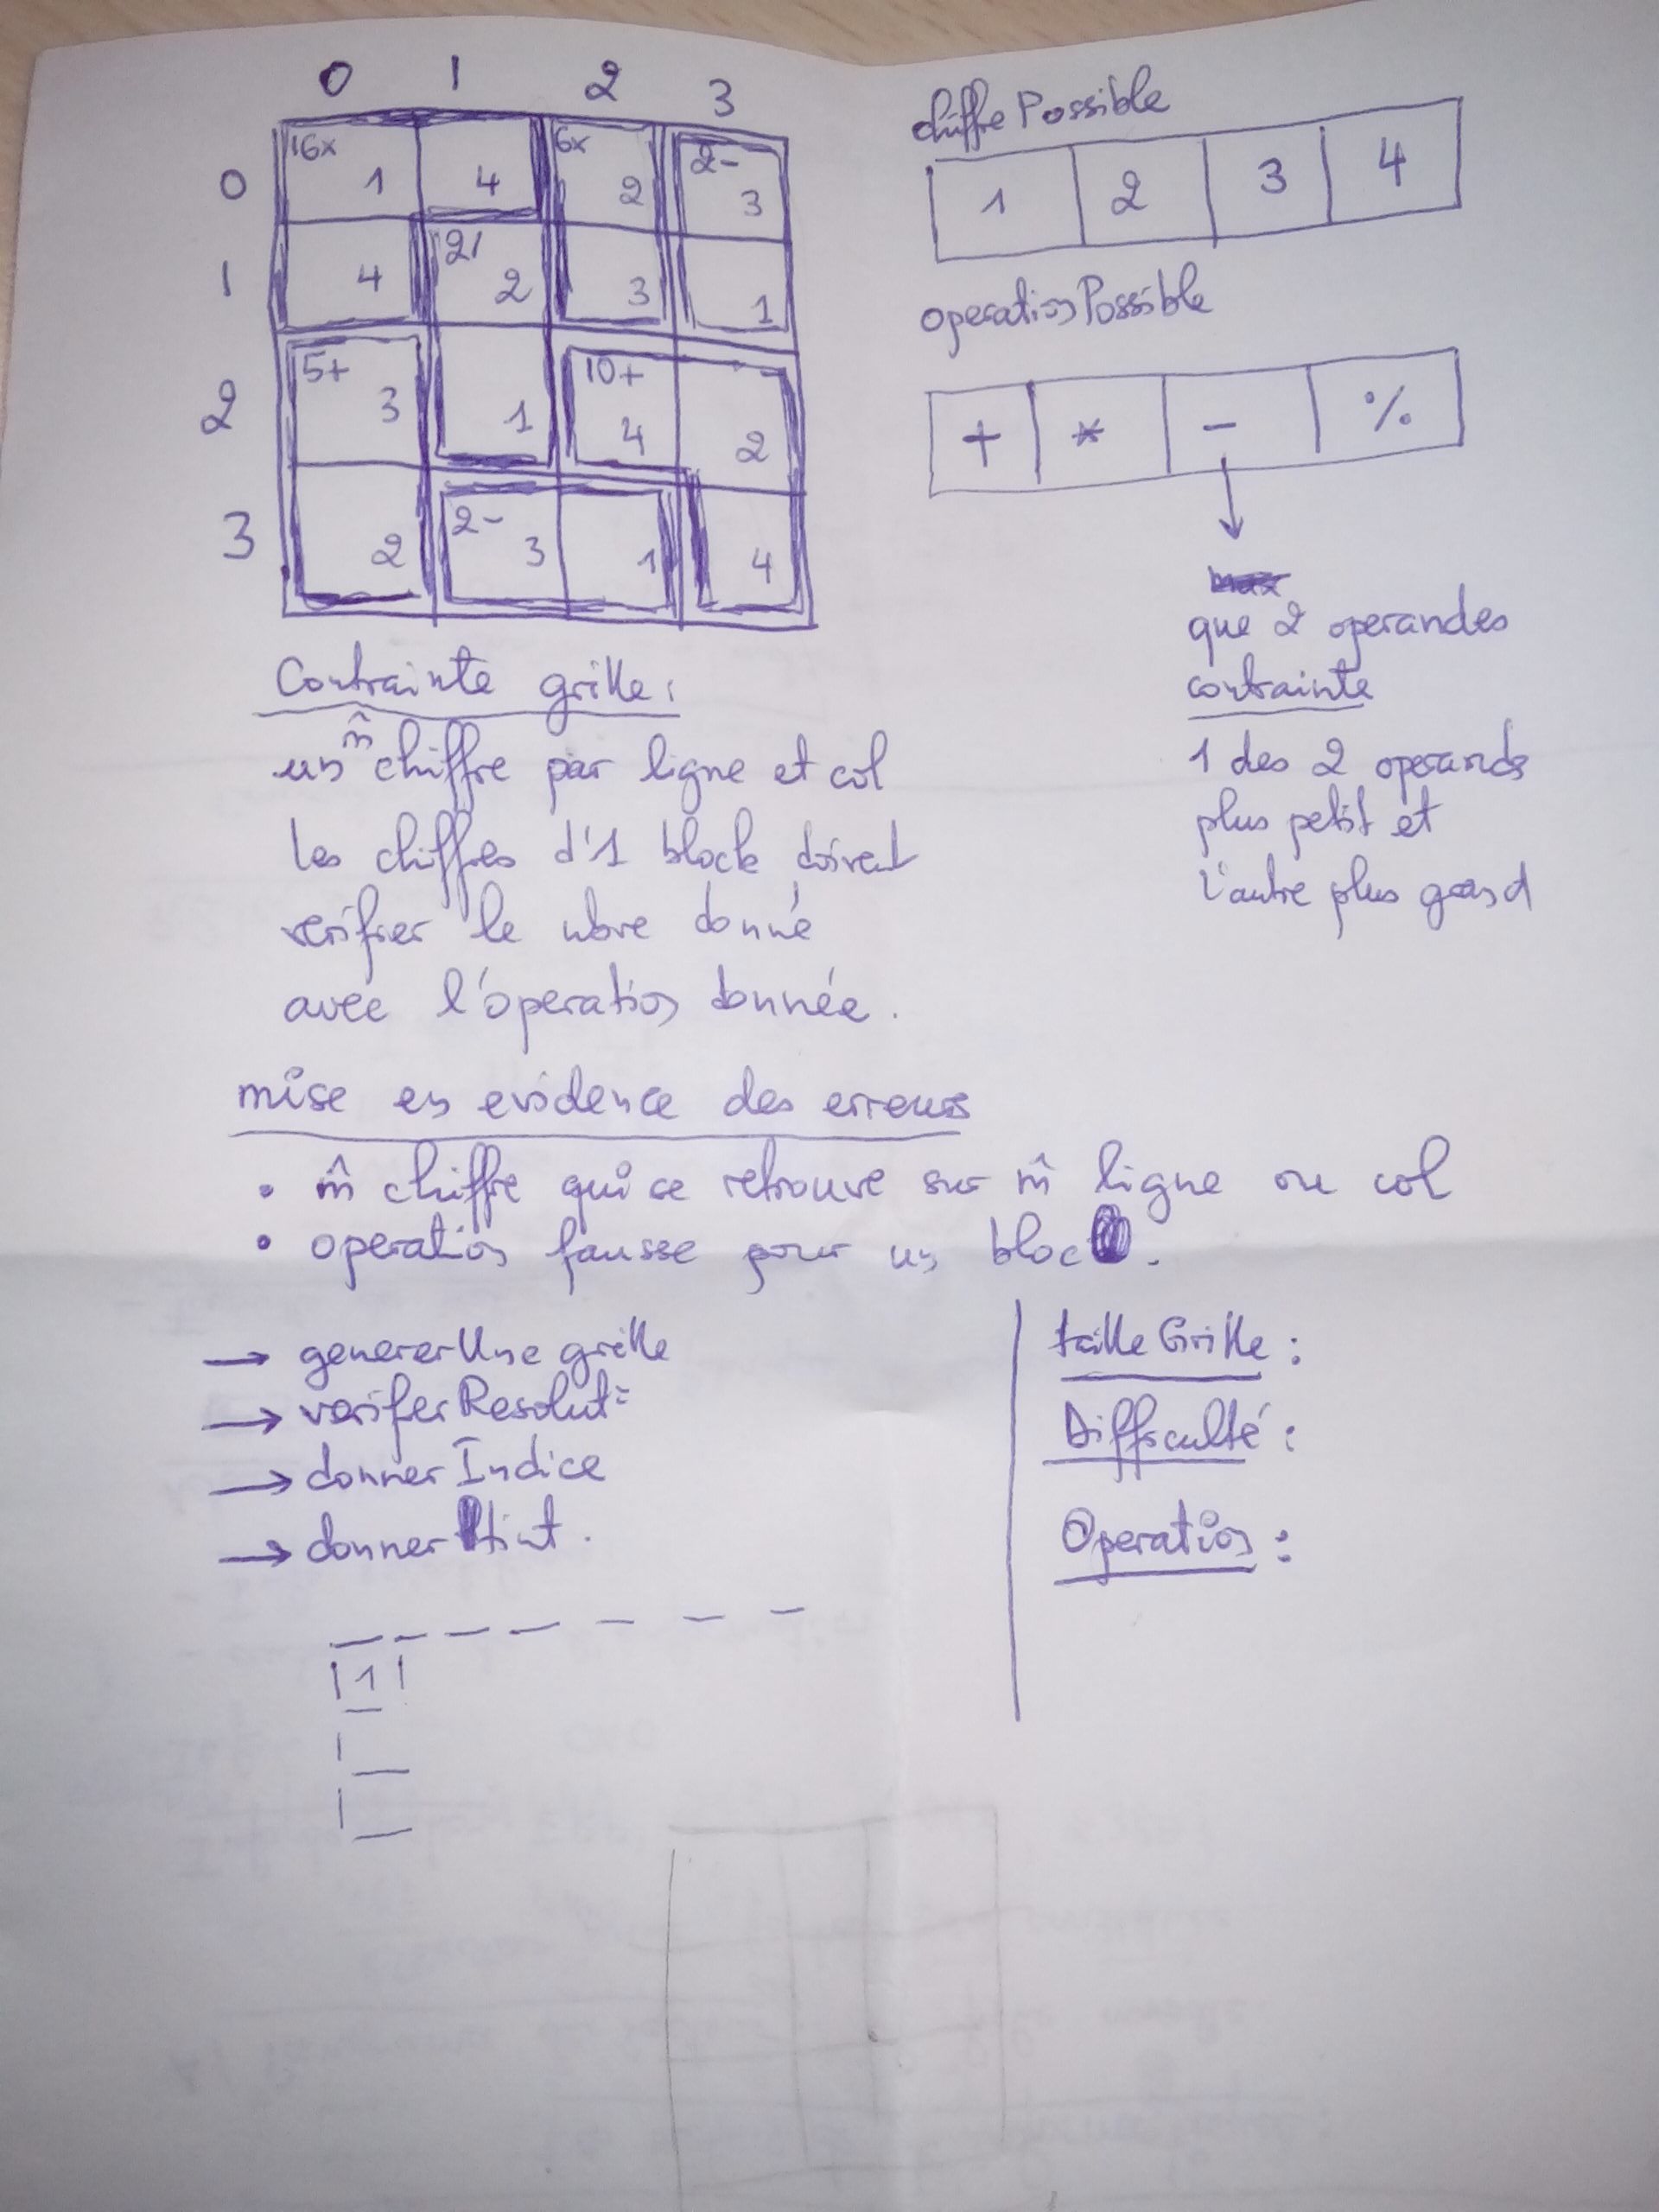 0 1 2 3
0 16x 1 4 6x 2 2- 3
1 4 2/ 2 3 1
2 5+ 3 1 10+ 4 2
3 2 2- 3 1 4
chiffrePossible
1 2 3 4
operationPossible
+ * - %
que 2 operandes
contrainte
1 des 2 operands
plus petit et
l'autre plus grand
Contrainte grille :
un m̂ chiffre par ligne et col
les chiffres d'1 block doivent
verifier le nbre donné
avec l'operation donnée.
mise en evidence des erreurs
• m̂ chiffre qui se retrouve sur m̂ ligne ou col
• operation fausse pour un bloc.
→ genererUne grille
→ veriferResolut°
→ donnerIndice
→ donner
tailleGrille :
Difficulté :
Operation :
|1|